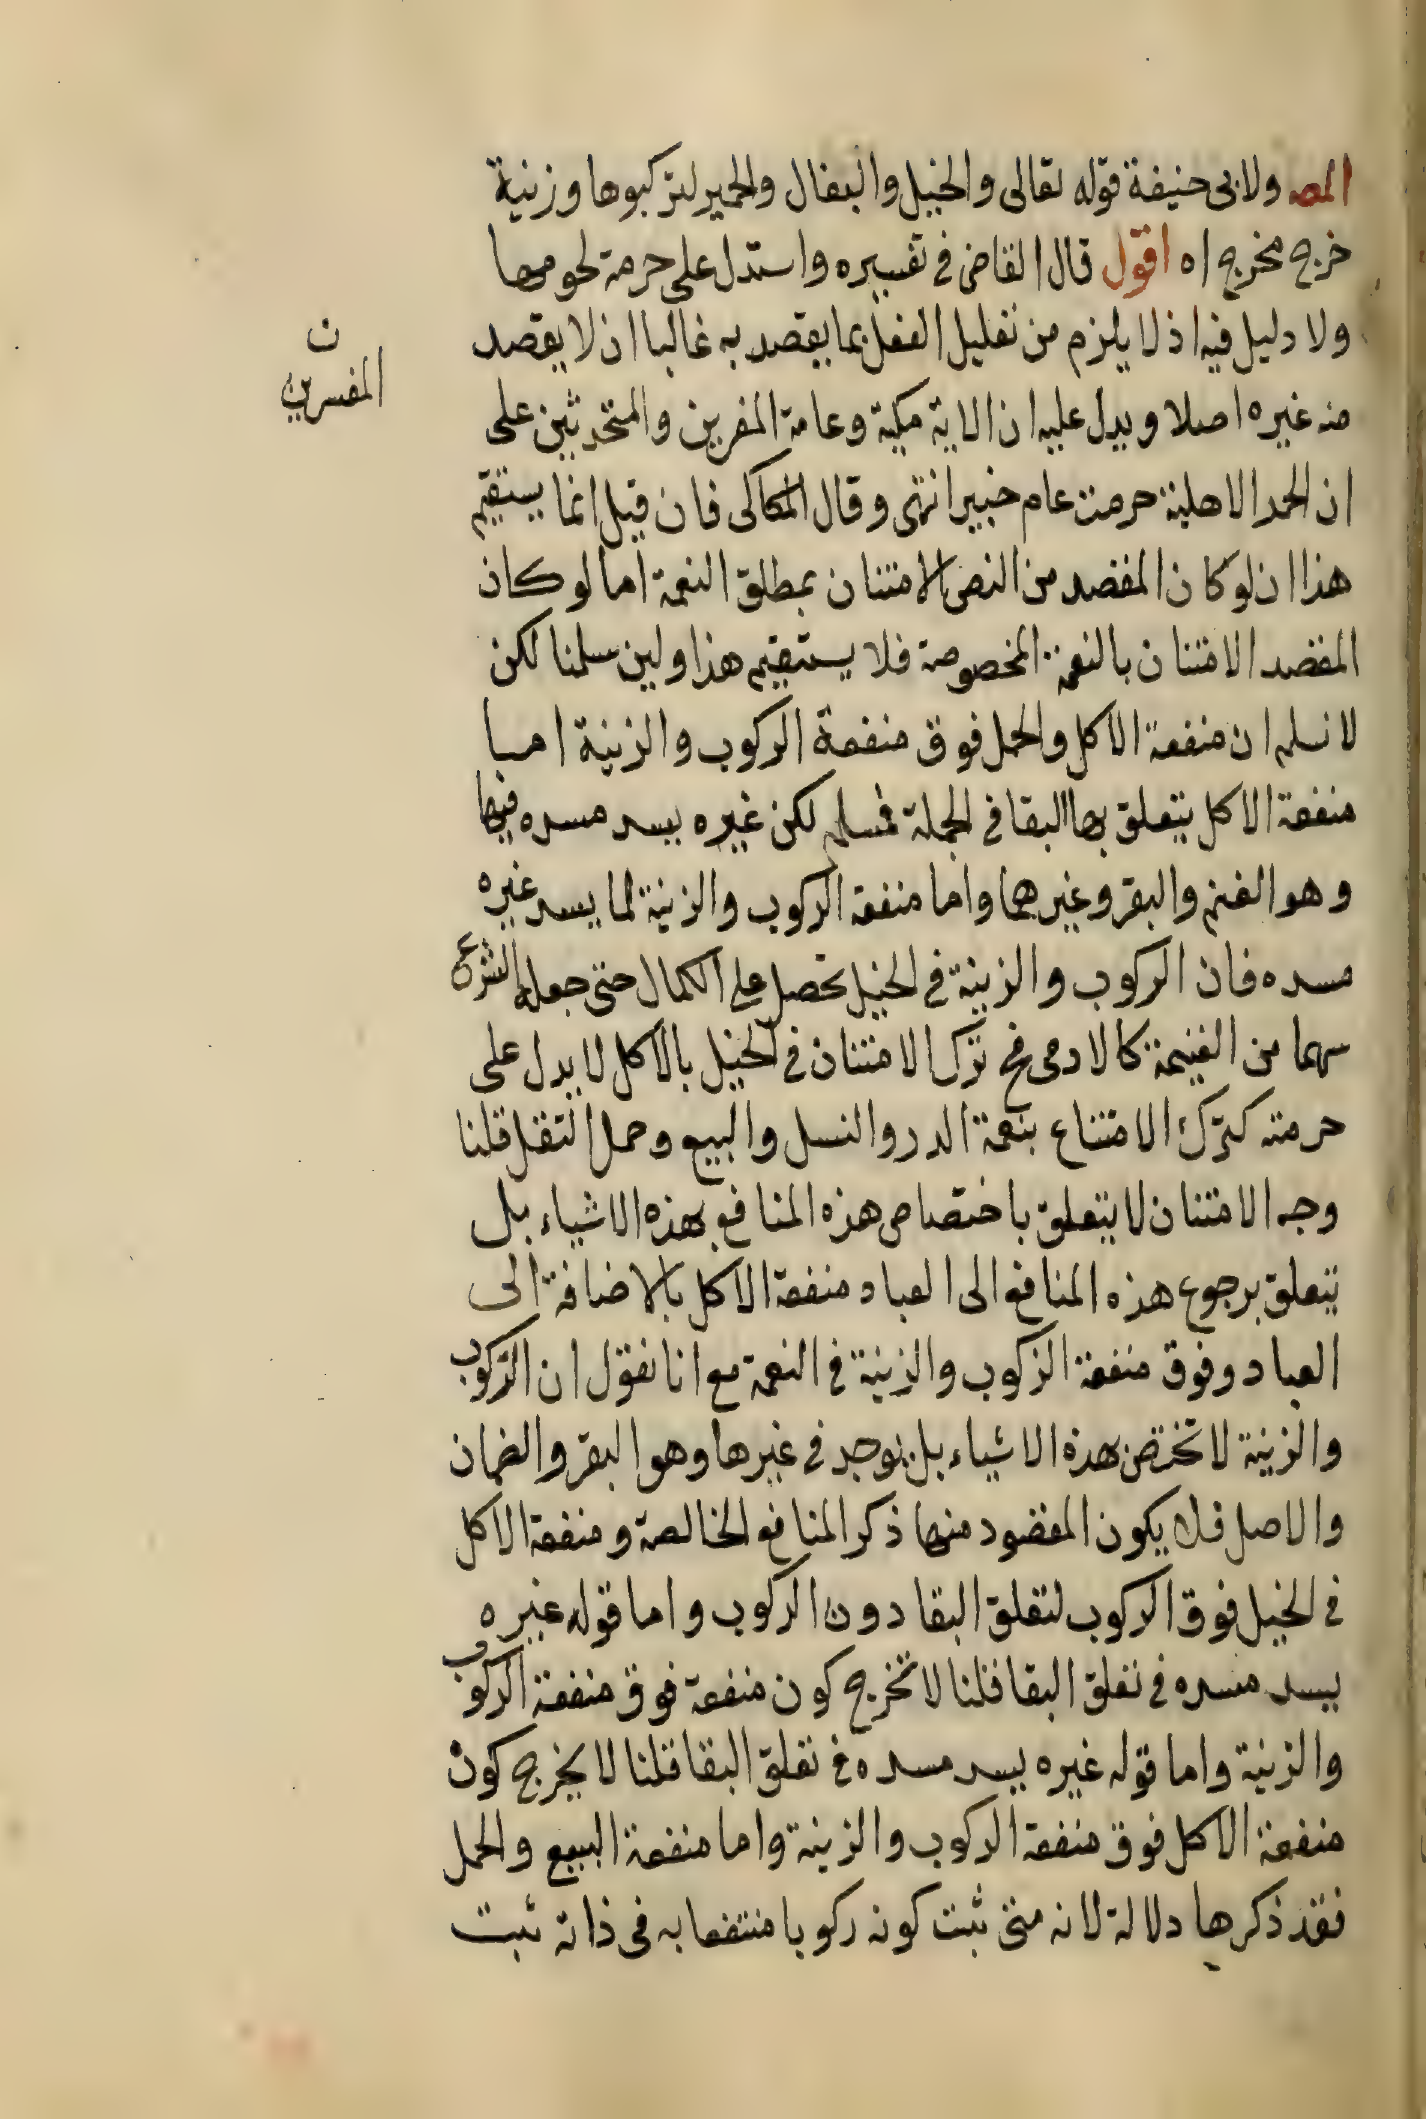 المصـ ولابى حنيفة قوله تعالى والخيل والبغال والحمير لتركبوها وزينة
خرج مخرج اه اقول قال القاضى فى تفسيره واستدل على حرمة لحومها
ولا دليل فيه اذ لا يلزم من تعليل الفعل بما يقصد به غالبا ان لا يقصد
منه غيره اصلا ويدل عليه ان الاية مكية وعامة المفرين والمتحدثين على
ن
المفسرين
ان الحمر الاهلية حرمت عام خيبر انتهى وقال الكاكى فان قيل انما يستقيم
هذا ان لو كان المقصد من النص الامتنان بمطلق النعمة اما لو كان
المقصد الامتنان بالنعمة المخصوصة فلا يستقيم هذا ولين سلمنا لكن
لا نسلم ان منفعة الاكل والحمل فوق منفعة الركوب والزينة اما
منفعة الاكل يتعلق بها البقا فى الجملة فمسلم لكن غيره يسد مسده فيها
وهو الغنم والبقر وغيرهما واما منفعة الركوب والزينة لما يسد غيره
مسده فان الركوب والزينة فى الخيل تحصل على الكمال حتى جعله الشرع
سهما من الغنيمة كالادمى فح ترك الامتنان فى الخيل بالاكل لا يدل على
حرمته كترك الامتناع بنعمة الدر والنسل والبيع وحمل الثقل قلنا
وجه الامتنان لا يتعلق باختصاص هذه المنافع بهذه الاشياء بل
يتعلق برجوع هذه المنافع الى العباد منفعة الاكل بالاضافة الى
العباد وفوق منفعة الركوب والزينة فى النعمة مع انا نقول ان الركوب
والزينة لا تختص بهذه الاشياء بل يوجد فى غيرها وهو البقر والضان
والاصل فلا يكون المقصود منها ذكر المنافع الخالصة ومنفعة الاكل
فى الخيل فوق الركوب لتعلق البقا دون الركوب واما قوله غيره
يسد مسده فى تعلق البقا قلنا لا تخرج كون منفعة فوق منفعة الركوب
والزينة واما قوله غيره يسد مسده فى تعلق البقا قلنا لا يخرج كون
منفعة الاكل فوق منفعة الركوب والزينة واما منفعة البيع والحمل
فقد ذكرها دلالة لانه متى ثبت كونه ركوبا منتفعا به فى ذاته ثبت